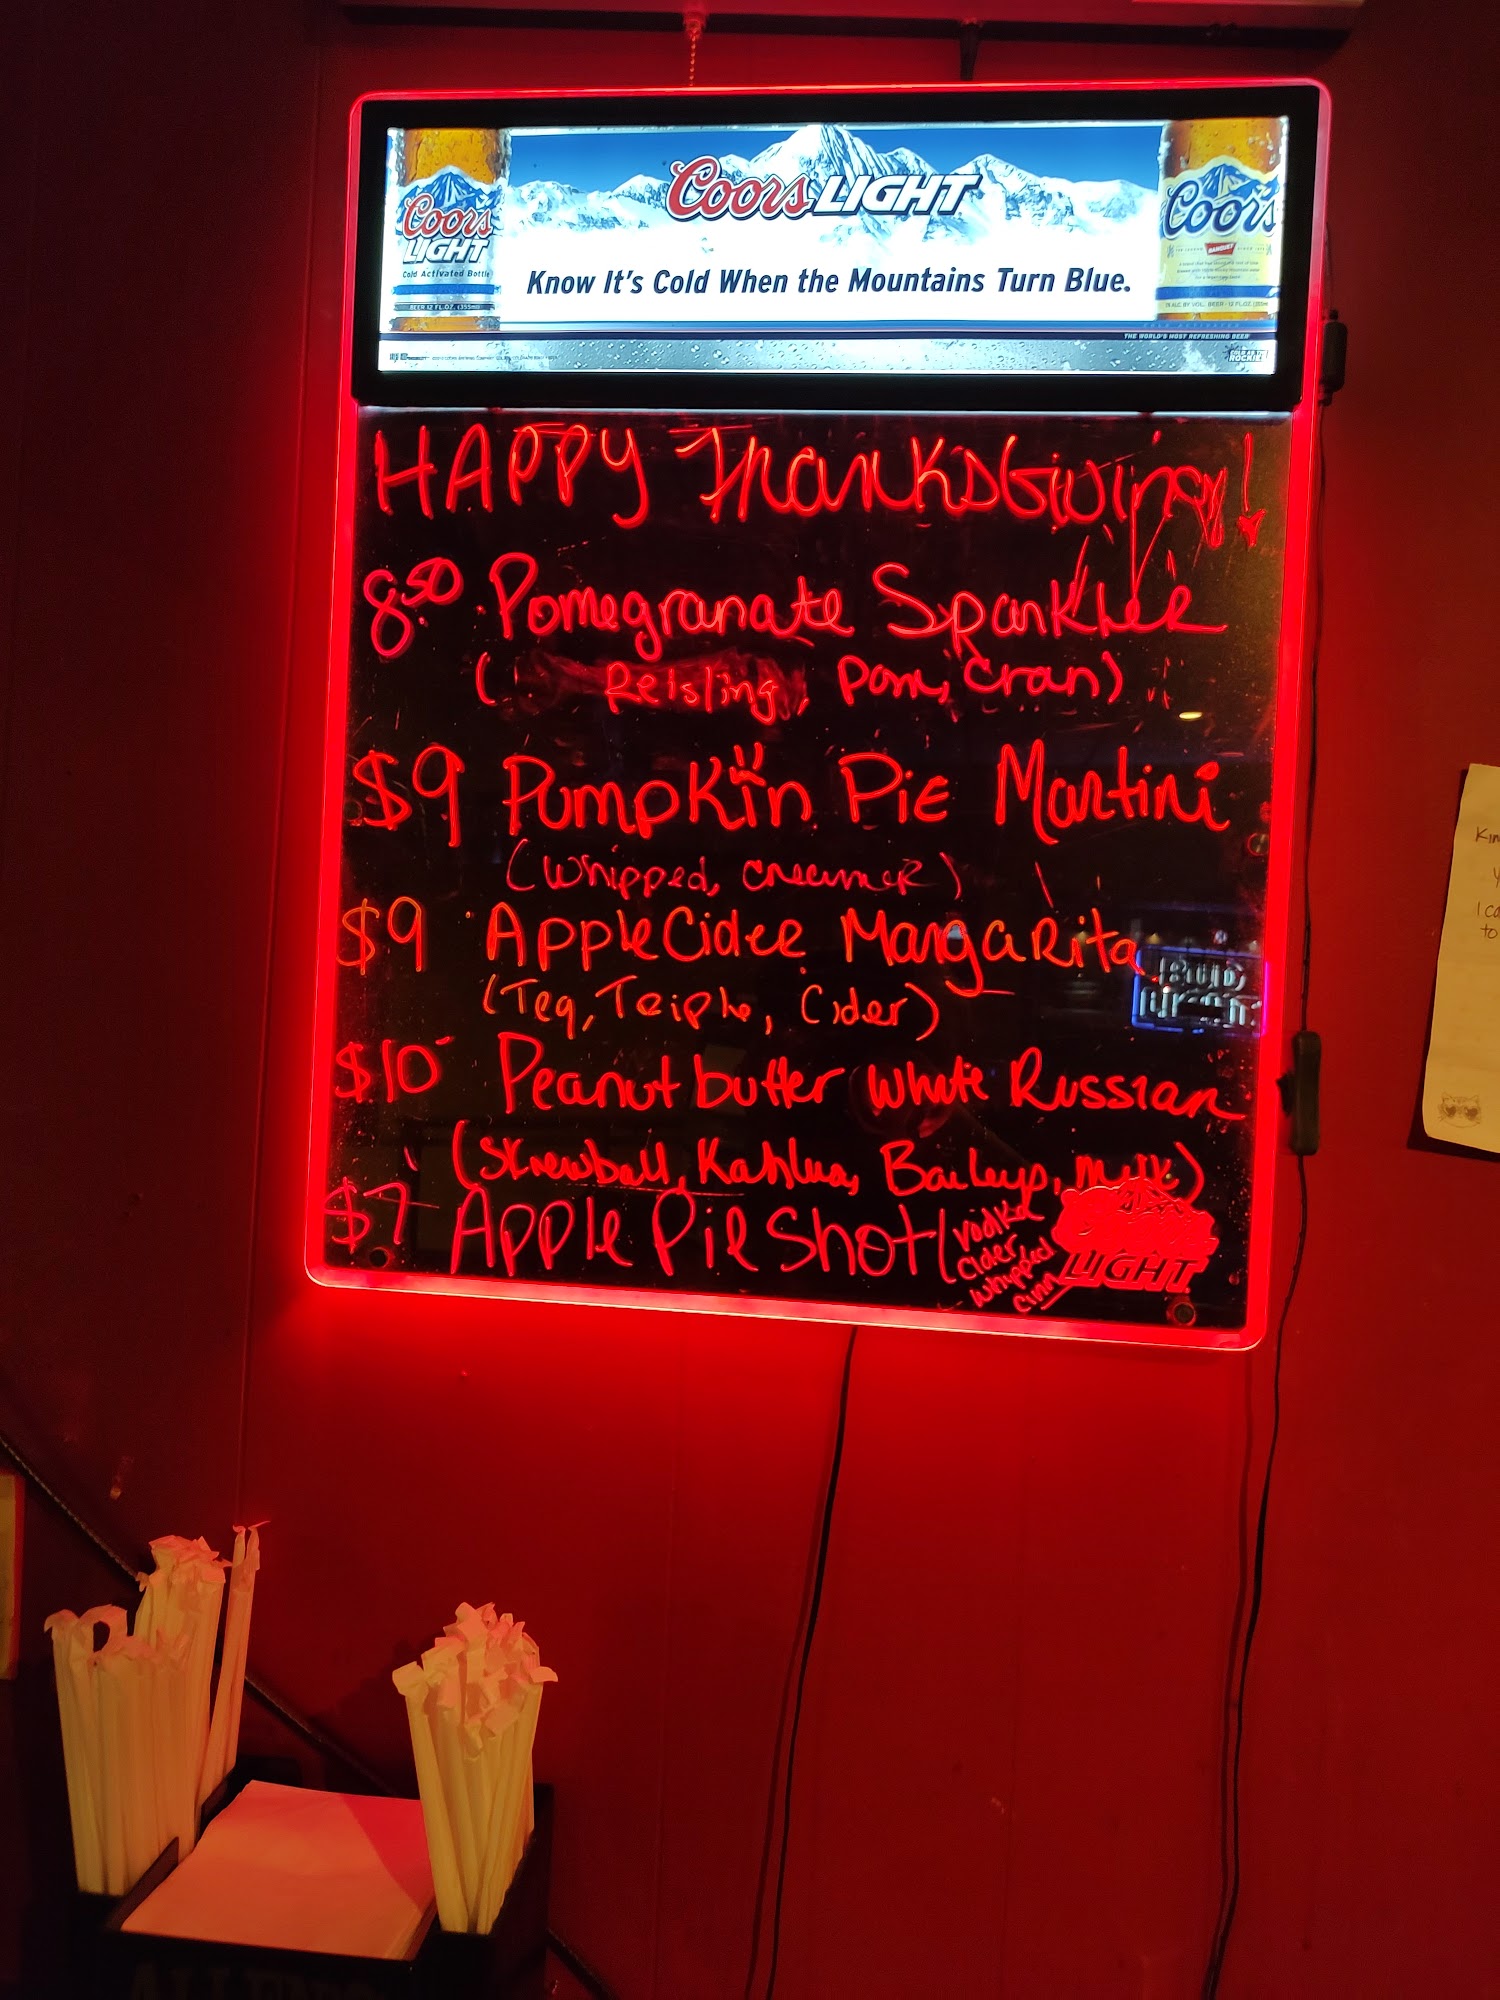 Coors LIGHT
Coors
LIGHT
Cold Activated Bottle
BEER 12 FL. OZ. (355ml)
Coors
BANQUET
Know It's Cold When the Mountains Turn Blue.
THE WORLD'S MOST REFRESHING BEER
HAPPY THANKSGiving!
8.50 Pomegranate Sparkler
(Reisling, Pom, Cran)
$9 Pumpkin Pie Martini
(Whipped, creamer)
$9 Apple Cider Margarita
(Teq, Triple, Cider)
$10 Peanut butter White Russian
(Skrewball, Kahlua, Baileys, milk)
$7 Apple Pie Shot (vodka
cider
whipped
cinn
LIGHT
BUD
LIGHT
Kin
Y
I co
to